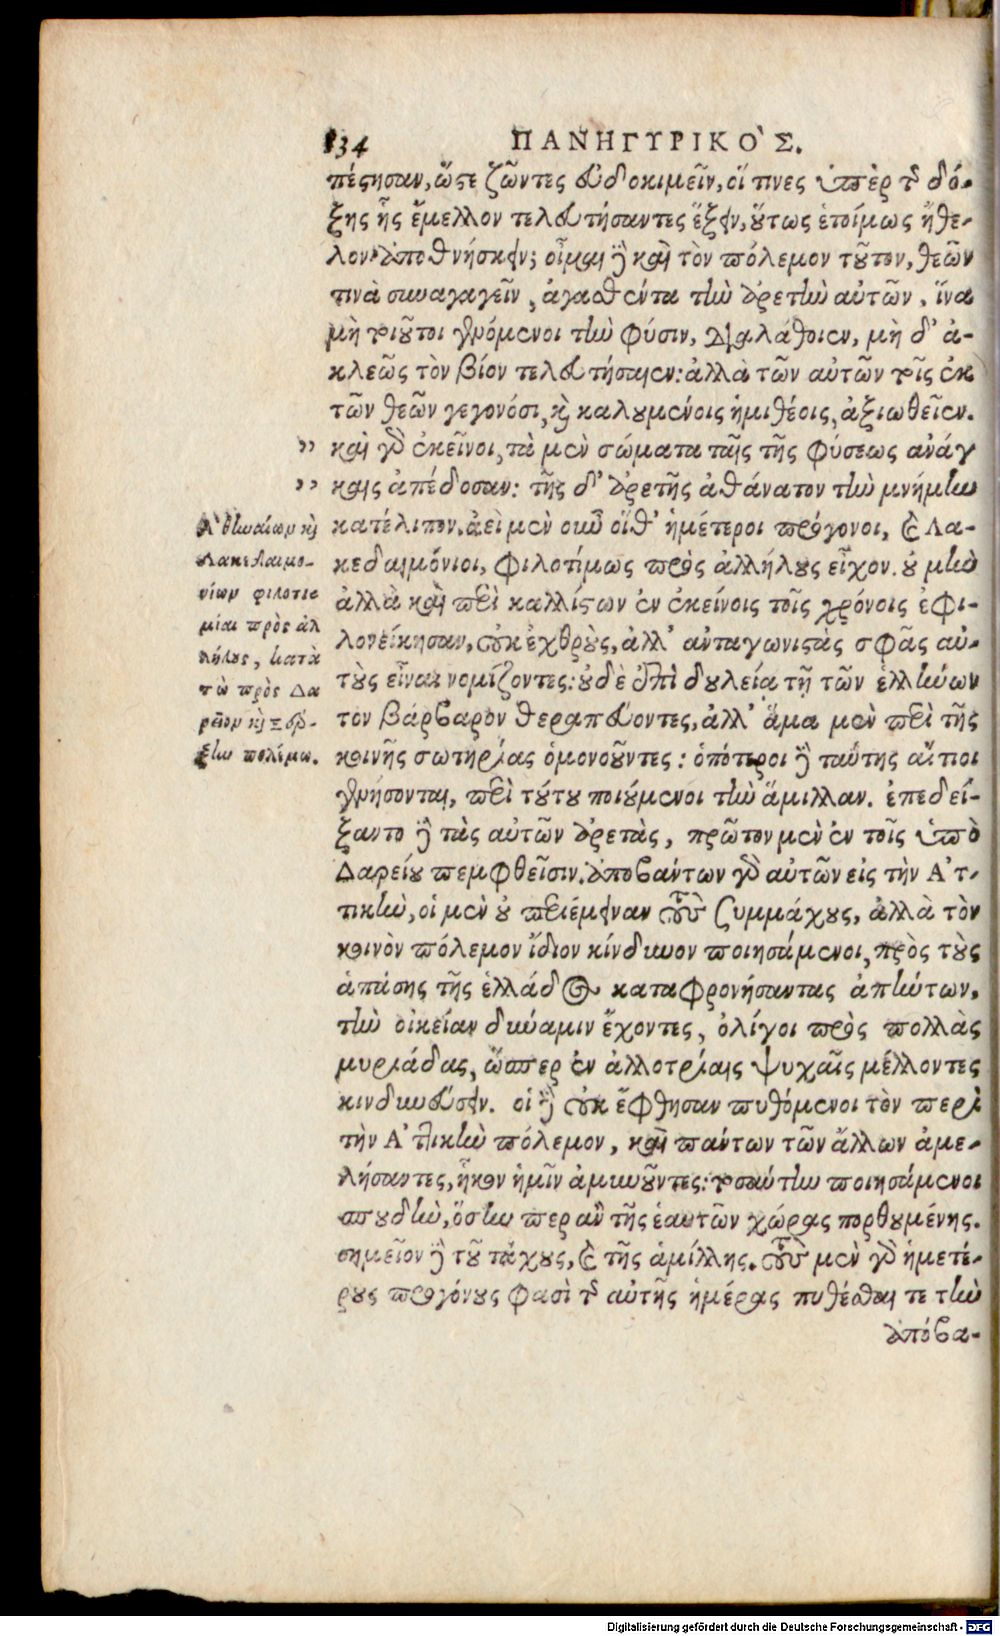 134 ΠΑΝΗΓΥΡΙΚΟ`Σ.
πέςησαν, ὥςε ζῶντες εὐδοκιμεῖν, οἵ τινες ὑπὲρ τ̂ δό-
ξης ἧς ἔμελλον τελευτήσαντες ἕξειν, ὅτως ἑτοίμως ἤθε-
λον ἀποθνήσκειν; οἶμαι ἢ καὶ τὸν πόλεμον τοῦτον, θεῶν
τινὰ συναγαγεῖν, ἀγασθέντα τὴν ἀρετὴν αὐτῶν, ἵνα
μὴ τοιοῦτοι γενόμενοι τὴν φύσιν, διαλάθοιεν, μὴ δ' ἀ-
κλεῶς τὸν βίον τελευτήσαιεν: ἀλλὰ τῶν αὐτῶν τοῖς ἐκ
τῶν θεῶν γεγονόσι, κỳ καλουμένοις ἡμιθέοις, ἀξιωθεῖεν.
" καὶ γὸ ἐκεῖνοι, τὰ μὲν σώματα ταῖς τῆς φύσεως ἀνάγ
" καις ἀπέδοσαν: τῆς δ' ἀρετῆς ἀθάνατον τὴν μνήμην
κατέλιπον. ἀεὶ μὲν οὖν οἵθ' ἡμέτεροι πρόγονοι, ϗ Λα-
κεδαιμόνιοι, φιλοτίμως πρὸς ἀλλήλους εἶχον. οὐ μὴν
ἀλλὰ καὶ περὶ καλλίςων ἐν ἐκείνοις τοῖς χρόνοις ἐφι-
λονείκησαν, οὐκ ἐχθροὺς, ἀλλ' ἀνταγωνιςὰς σφᾶς αὐ-
τοὺς εἶναι νομίζοντες: οὐδὲ ἐπὶ δουλείᾳ τῇ τῶν ἑλλήνων
τον βάρβαρον θεραπεύοντες, ἀλλ' ἅμα μὲν περὶ τῆς
κοινῆς σωτηρίας ὁμονοοῦντες: ὁπότεροι ἢ ταύτης αἴτιοι
γενήσονται, περὶ τούτου ποιούμενοι τὴν ἅμιλλαν. ἐπεδεί-
ξαντο ἢ τὰς αὐτῶν ἀρετὰς, πρῶτον μὲν ἐν τοῖς ὑπὸ
Δαρείου πεμφθεῖσιν. ἀποβάντων γὸ αὐτῶν εἰς τὴν Α'τ-
τικὴν, οἱ μὲν οὐ περιέμειναν τοὺς ξυμμάχους, ἀλλὰ τὸν
κοινὸν πόλεμον ἴδιον κίνδυνον ποιησάμενοι, πρὸς τοὺς
ἁπάσης τῆς ἑλλάδος καταφρονήσαντας ἀπήντων,
τὴν οἰκείαν δύναμιν ἔχοντες, ὀλίγοι πρὸς πολλὰς
μυριάδας, ὥσπερ ἐν ἀλλοτρίαις ψυχαῖς μέλλοντες
κινδυνεύσειν. οἱ ἢ οὐκ ἔφθησαν πυθόμενοι τὸν περὶ
τὴν Α'τικὴν πόλεμον, καὶ πάντων τῶν ἄλλων ἀμε-
λήσαντες, ἧκον ἡμῖν ἀμυνοῦντες: τοσαύτην ποιησάμενοι
σπουδὴν, ὅσην περ αν τῆς ἑαυτῶν χώρας πορθουμένης.
σημεῖον ἢ τοῦ τάχους, ϗ τῆς ἁμίλλης. τοὺς μὲν γὸ ἡμετέ-
ρους προγόνους φασὶ τ̂ αὐτῆς ἡμέρας πυθέσθαι τε τὴν
ἀπόβα-
Α'θηναίων κỳ
Λακεδαιμο-
νίων φιλοτι-
μίαι πρὸς ἀλ
λήλους, κατὰ
τὸ πρὸς Δα
ρεῖον κỳ Ξέρ-
ξην πολέμω.
Digitalisierung gefördert durch die Deutsche Forschungsgemeinschaft - DFG